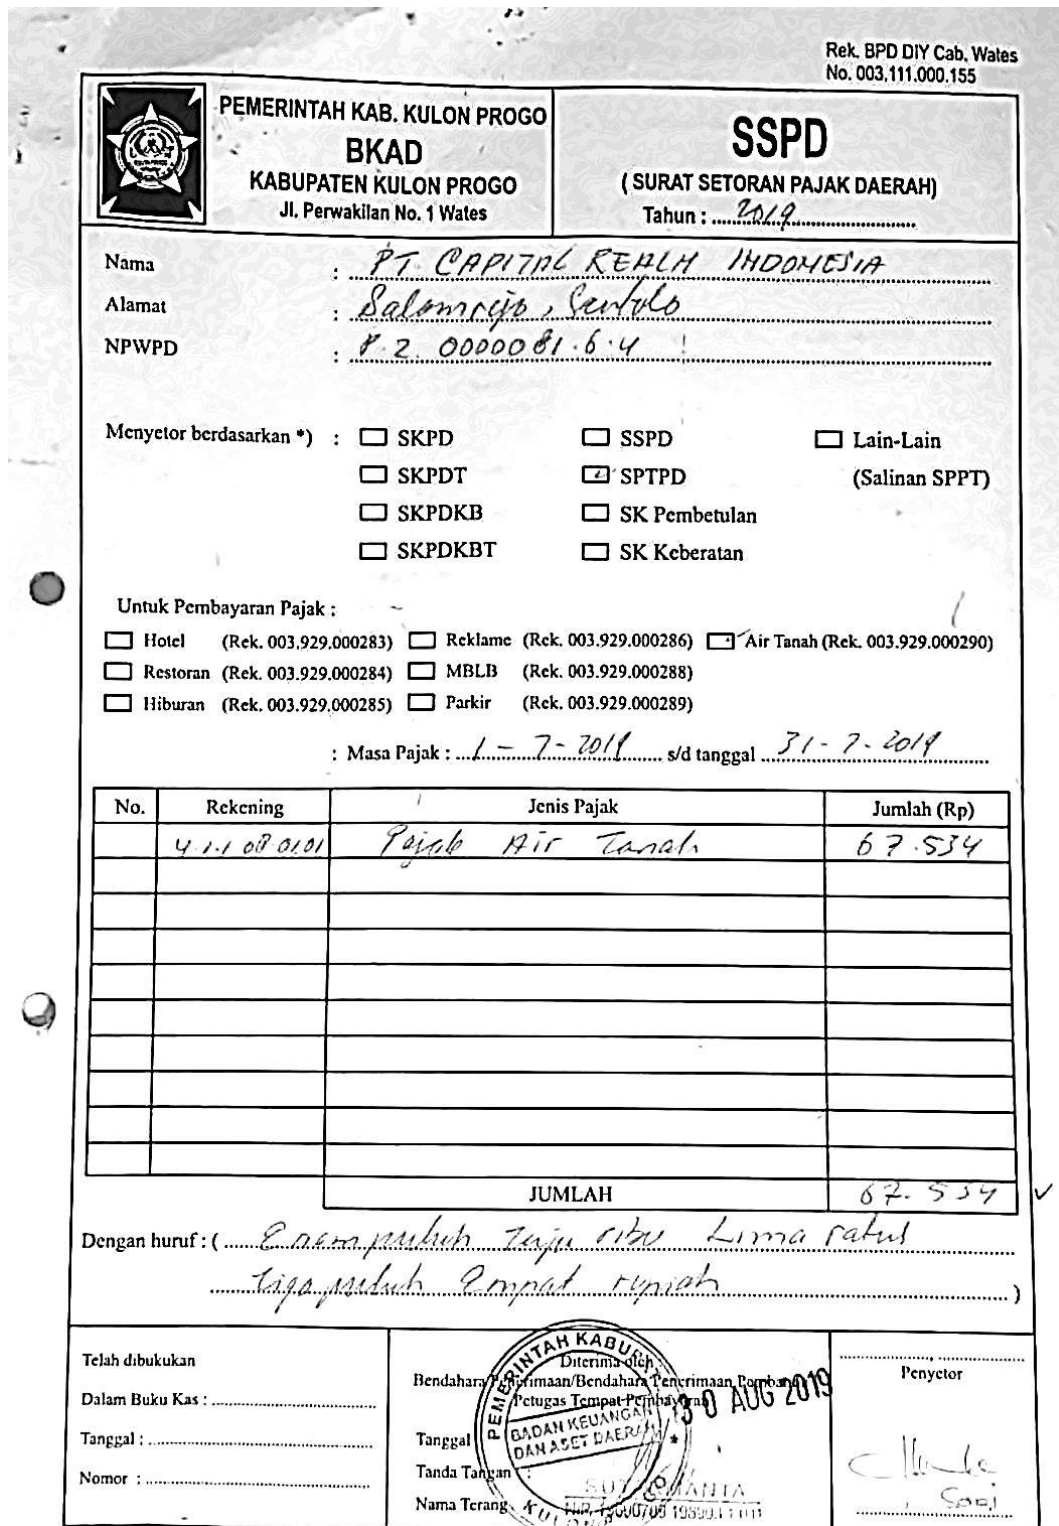 Rek. BPD DIY Cab. Wates
No. 003.111.000.155
PEMERINTAH KAB. KULON PROGO
BKAD
KABUPATEN KULON PROGO
Jl. Perwakilan No. 1 Wates
SSPD
( SURAT SETORAN PAJAK DAERAH)
Tahun : 2019
Nama : PT. CAPITAL REALM INDONESIA
Alamat : Salamrejo, Sentolo
NPWPD : P.2.0000081.6.4
Menyetor berdasarkan *) : SKPD SSPD Lain-Lain
SKPDT SPTPD (Salinan SPPT)
SKPDKB SK Pembetulan
SKPDKBT SK Keberatan
Untuk Pembayaran Pajak :
Hotel (Rek. 003.929.000283) Reklame (Rek. 003.929.000286) Air Tanah (Rek. 003.929.000290)
Restoran (Rek. 003.929.000284) MBLB (Rek. 003.929.000288)
Hiburan (Rek. 003.929.000285) Parkir (Rek. 003.929.000289)
: Masa Pajak : 1 - 7 - 2019 s/d tanggal 31 - 7 - 2019
No. Rekening Jenis Pajak Jumlah (Rp)
4.1.1.08.01.01 Pajak Air Tanah 67.534
JUMLAH 67.534
Dengan huruf : ( Enam puluh tuju ribu Lima ratus
tiga puluh Empat rupiah )
Telah dibukukan
Dalam Buku Kas :
Tanggal :
Nomor :
Diterima oleh :
Bendahara Penerimaan/Bendahara Penerimaan Pembantu
Petugas Tempat Pembayaran
30 AUG 2019
PEMERINTAH KABUPATEN
BADAN KEUANGAN
DAN ASET DAERAH
KULON PROGO
Tanggal
Tanda Tangan :
Nama Terang
Penyetor